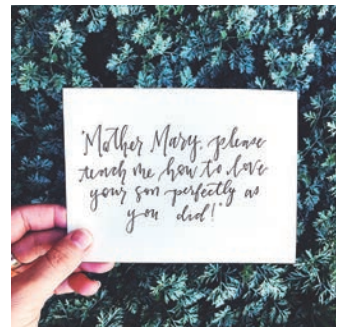 "Mother Mary, please
teach me how to love
your son perfectly as
you did!"